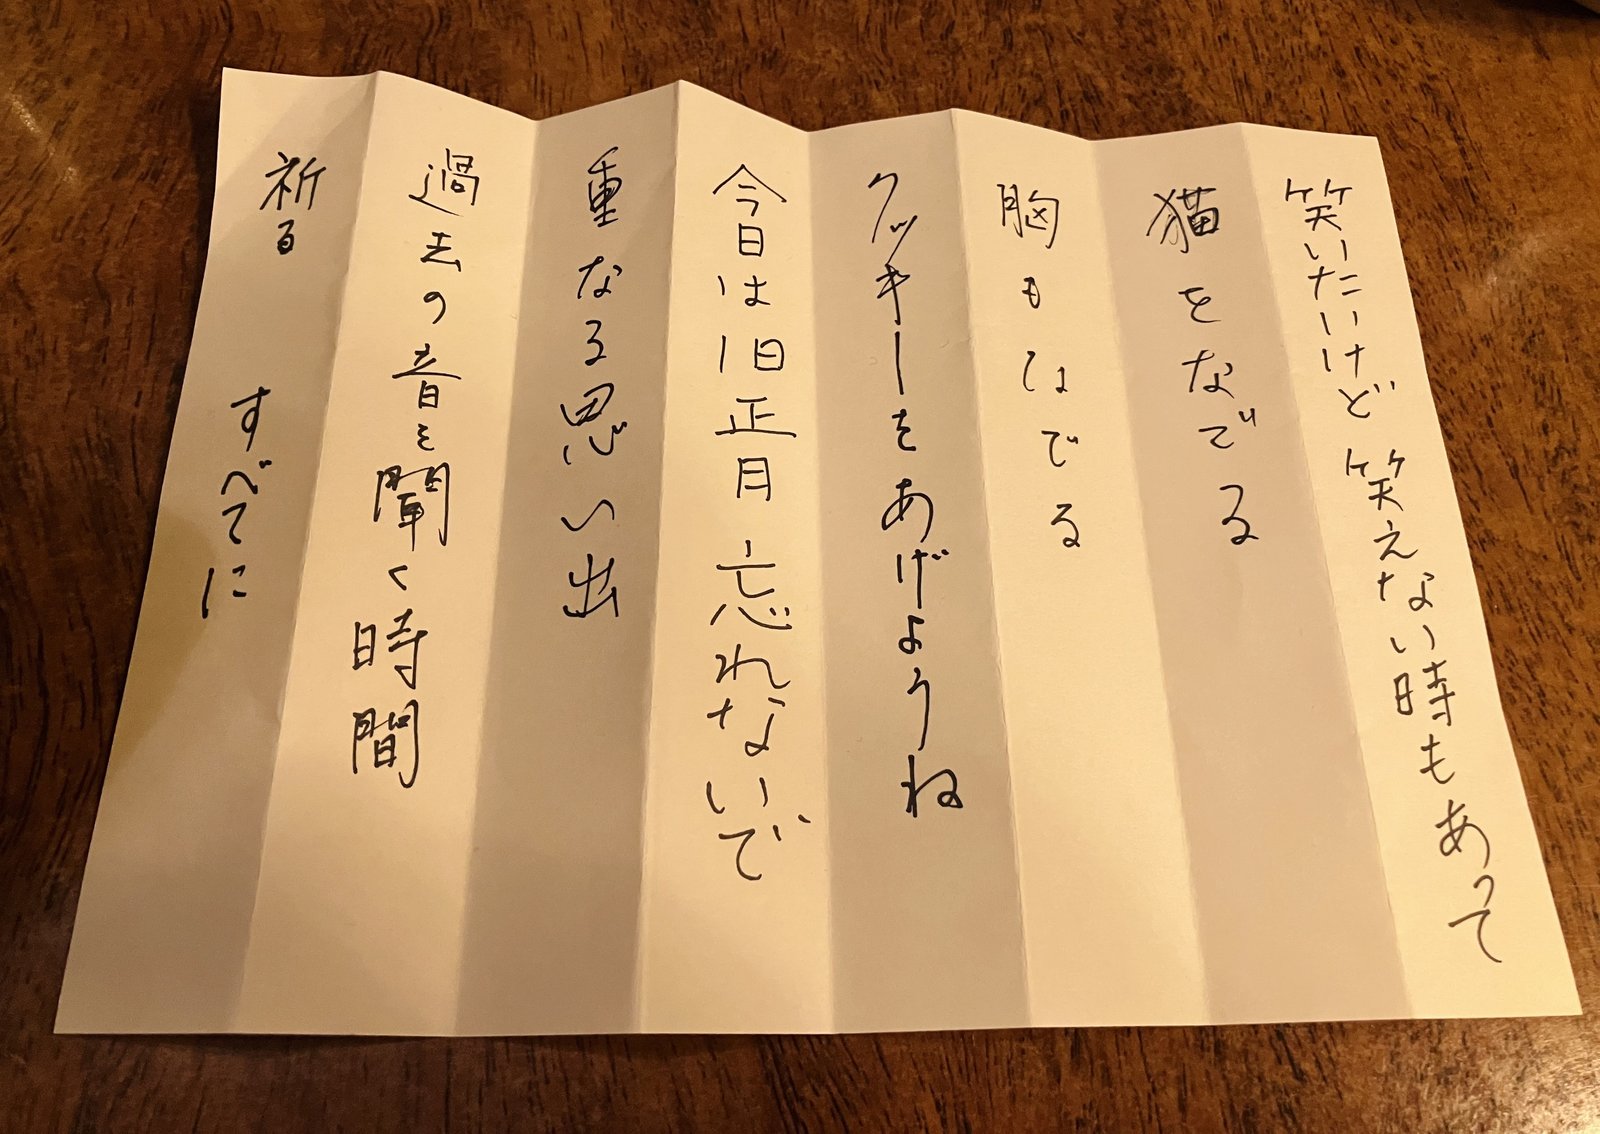 笑いたいけど 笑えない時もあって
猫をなでる
胸もなでる
クッキーをあげようね
今日は旧正月 忘れないで
重なる思い出
過去の音を聞く時間
祈る すべてに